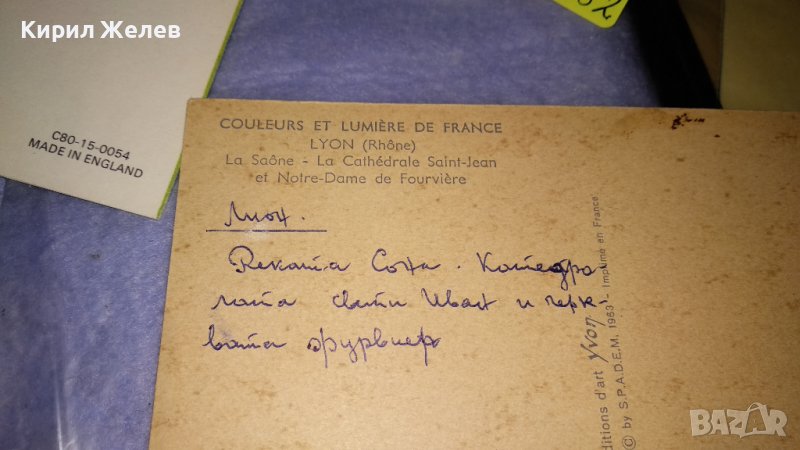 Кирил Желев
C80-15-0054
MADE IN ENGLAND
COULEURS ET LUMIÈRE DE FRANCE
LYON (Rhône)
La Saône - La Cathédrale Saint-Jean
et Notre-Dame de Fourvière
Лион.
Реката Сона. Катедра-
лата свети Иван и черк-
вата фурвиер
ditions d'art yvon - Imprimé en France
© by S.P.A.D.E.M. 1963
BAZAR